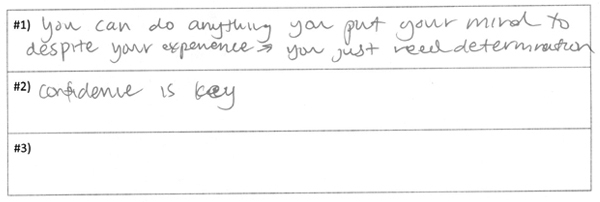 #1) You can do anything you put your mind to
despite your experience → you just need determination
#2) confidence is key
#3)